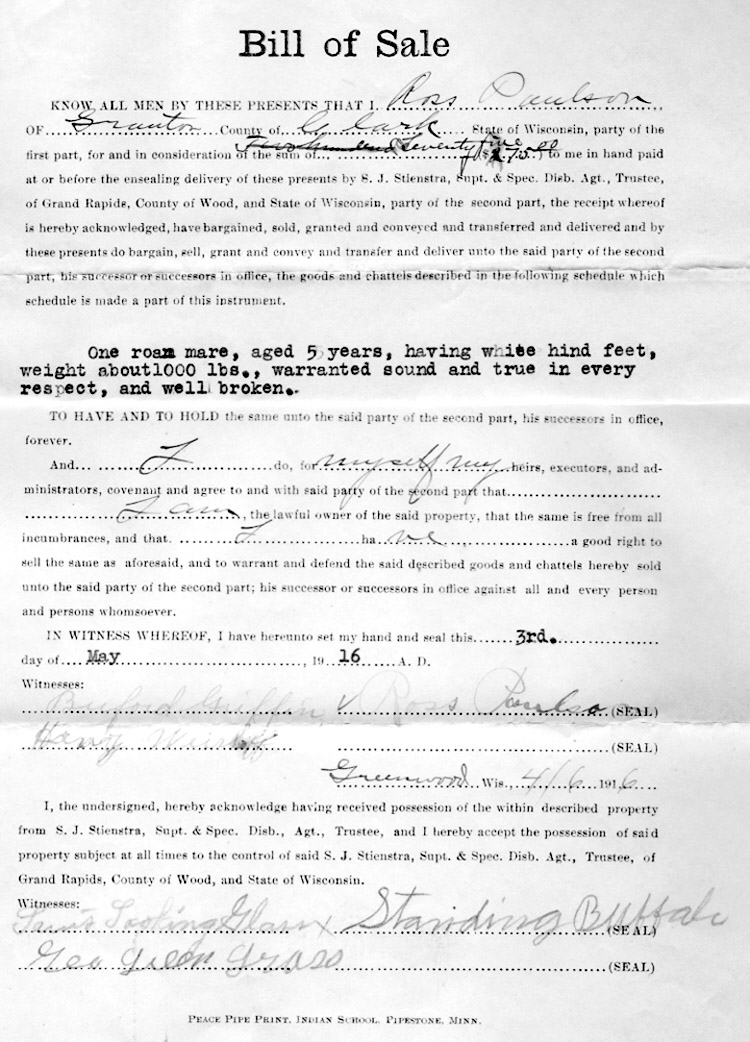 Bill of Sale
KNOW ALL MEN BY THESE PRESENTS THAT I, Ross Paulson
OF Granton County of Clark State of Wisconsin, party of the
first part, for and in consideration of the sum of seventy five ($ 75.00 ) to me in hand paid
at or before the ensealing delivery of these presents by S. J. Stienstra, Supt. & Spec. Disb. Agt., Trustee,
of Grand Rapids, County of Wood, and State of Wisconsin, party of the second part, the receipt whereof
is hereby acknowledged, have bargained, sold, granted and conveyed and transferred and delivered and by
these presents do bargain, sell, grant and convey and transfer and deliver unto the said party of the second
part, his successor or successors in office, the goods and chattels described in the following schedule which
schedule is made a part of this instrument.
One roan mare, aged 5 years, having white hind feet,
weight about1000 lbs., warranted sound and true in every
respect, and well broken.
TO HAVE AND TO HOLD the same unto the said party of the second part, his successors in office,
forever.
And I do, for myself my heirs, executors, and ad-
ministrators, covenant and agree to and with said party of the second part that
I am, the lawful owner of the said property, that the same is free from all
incumbrances, and that I ha ve a good right to
sell the same as aforesaid, and to warrant and defend the said described goods and chattels hereby sold
unto the said party of the second part; his successor or successors in office against all and every person
and persons whomsoever.
IN WITNESS WHEREOF, I have hereunto set my hand and seal this 3rd.
day of May, 19 16 A. D.
Witnesses:
Buford Griffin Ross Paulson (SEAL)
Harry (SEAL)
Greenwood Wis., 4/6 1916
I, the undersigned, hereby acknowledge having received possession of the within described property
from S. J. Stienstra, Supt. & Spec. Disb., Agt., Trustee, and I hereby accept the possession of said
property subject at all times to the control of said S. J. Stienstra, Supt. & Spec. Disb. Agt., Trustee, of
Grand Rapids, County of Wood, and State of Wisconsin.
Witnesses:
Looking Glass x Standing Buffalo (SEAL)
Geo Green Grass (SEAL)
PEACE PIPE PRINT, INDIAN SCHOOL, PIPESTONE, MINN.